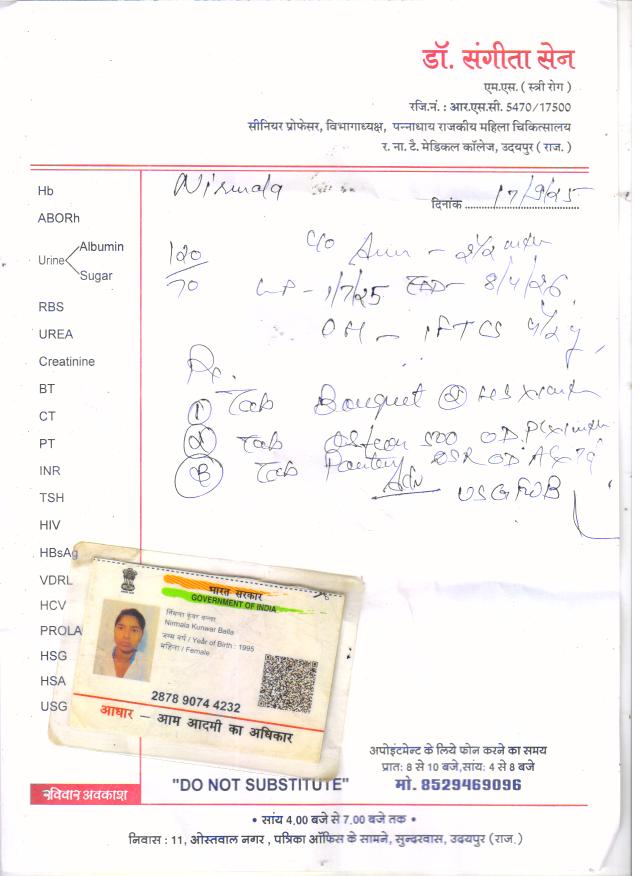 डॉ. संगीता सेन
एम.एस. ( स्त्री रोग )
रजि.नं. : आर.एस.सी. 5470/17500
सीनियर प्रोफेसर, विभागाध्यक्ष, पन्नाधाय राजकीय महिला चिकित्सालय
र. ना. टै. मेडिकल कॉलेज, उदयपुर ( राज. )
Nirmala
दिनांक 17/9/25
Hb
ABORh
Urine Albumin
Sugar
RBS
UREA
Creatinine
BT
CT
PT
INR
TSH
HIV
HBsAg
VDRL
HCV
PROLA
HSG
HSA
USG
120
70
C/O - 2 1/2
1/7/25 EDD- 8/4/26
OH - 1FTCS
Rx.
① Tab HS
② Tab 500 OD
③ Tab DSR OD
Adv USG
भारत सरकार
GOVERNMENT OF INDIA
Nirmala Kunwar Balla
जन्म वर्ष / Year of Birth : 1995
महिला / Female
2878 9074 4232
आधार — आम आदमी का अधिकार
अपोइंटमेन्ट के लिये फोन करने का समय
प्रातः 8 से 10 बजे,सांयः 4 से 8 बजे
मो. 8529469096
रविवार अवकाश
"DO NOT SUBSTITUTE"
• सांय 4.00 बजे से 7.00 बजे तक •
निवास : 11, ओस्तवाल नगर , पत्रिका ऑफिस के सामने, सुन्दरवास, उदयपुर (राज.)